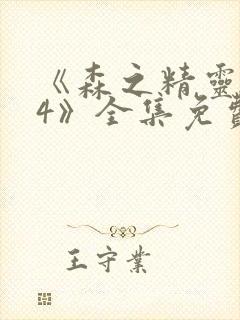 《森之精靈
4》全集免費
王守業